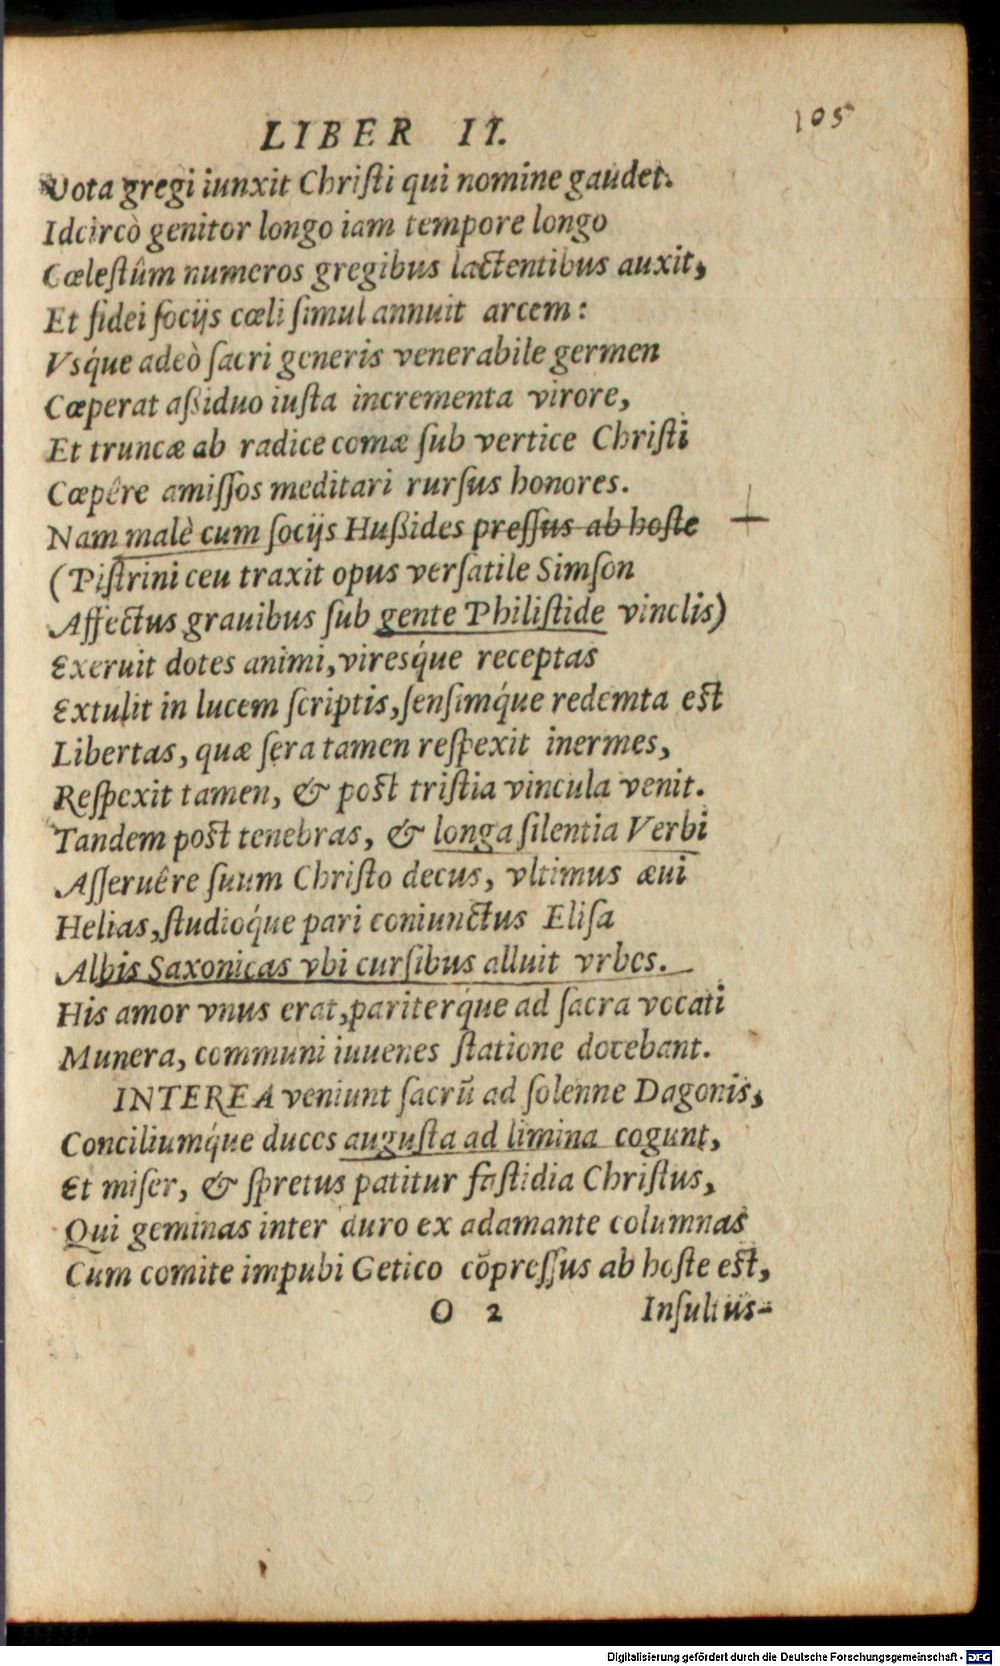 LIBER II.
105
Vota gregi iunxit Christi qui nomine gaudet.
Idcircò genitor longo iam tempore longo
Cœlestûm numeros gregibus lactentibus auxit,
Et fidei socijs cœli simul annuit arcem:
Vsq́ue adeò sacri generis venerabile germen
Cœperat aßiduo iusta incrementa virore,
Et truncæ ab radice comæ sub vertice Christi
Cœpêre amissos meditari rursus honores.
Nam malè cum socijs Hußides pressus ab hoste
(Pistrini ceu traxit opus versatile Simson
Affectus grauibus sub gente Philistide vinclis)
Exeruit dotes animi, viresq́ue receptas
Extulit in lucem scriptis, sensimq́ue redemta est
Libertas, quæ sera tamen respexit inermes,
Respexit tamen, & post tristia vincula venit.
Tandem post tenebras, & longa silentia Verbi
Asseruêre suum Christo decus, vltimus æui
Helias, studioq́ue pari coniunctus Elisa
Albis Saxonicas vbi cursibus alluit vrbes.
His amor vnus erat, pariterq́ue ad sacra vocati
Munera, communi iuuenes statione docebant.
INTEREA veniunt sacrũ ad solenne Dagonis,
Conciliumq́ue duces augusta ad limina cogunt,
Et miser, & spretus patitur fastidia Christus,
Qui geminas inter duro ex adamante columnas
Cum comite impubi Getico cõpressus ab hoste est,
O 2 Insultus-
Digitalisierung gefördert durch die Deutsche Forschungsgemeinschaft - DFG